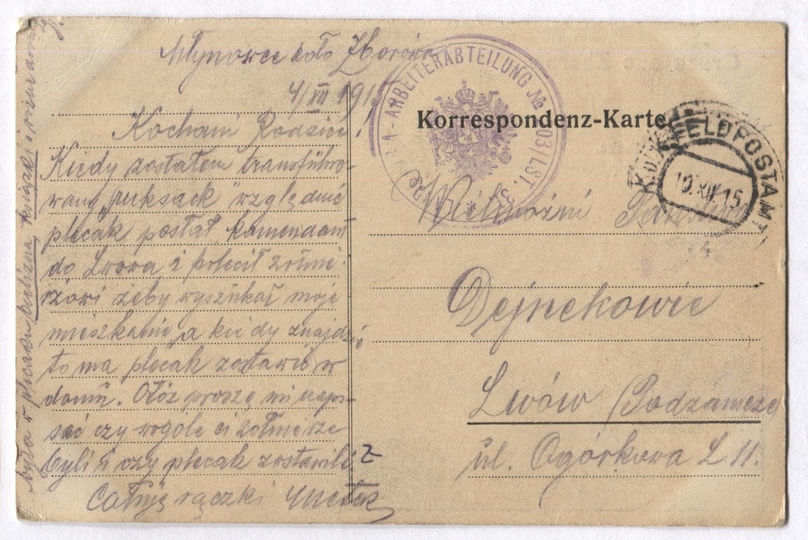 Młynowce koło Zborów
4/XII 191
Kochani Rodzice!
Kiedy zostałem transfüro-
wany „ruksack" względnie
plecak posłał komendant
do Lwowa i polecił żołnie-
rzowi żeby wyszukał moje
mieszkanie, a kiedy znajdzie
to ma plecak zostawić w
domu. Otóż proszę mi napi-
sać czy wogóle ci żołnierze
byli i czy plecak zostawili
Całuję rączki
była w plecaku bielizna książki i
K.u.k. ARBEITERABTEILUNG No 303/LST.
Korrespondenz-Karte
K.u.K. FELDPOSTAMT
10.XII.15
Wielmożni
Dejnekowie
Lwów (Podzamcze
ul. Ogórkowa L 11.
Z